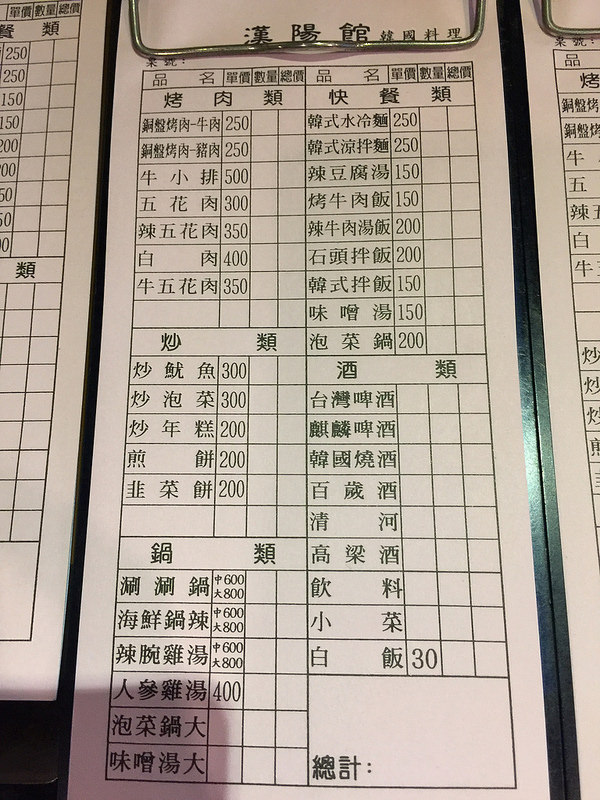 漢陽館 韓國料理
桌號:
品名 單價 數量 總價
烤肉類
銅盤烤肉-牛肉 250
銅盤烤肉-豬肉 250
牛小排 500
五花肉 300
辣五花肉 350
白肉 400
牛五花肉 350
炒類
炒魷魚 300
炒泡菜 300
炒年糕 200
煎餅 200
韭菜餅 200
鍋類
涮涮鍋 中600 大800
海鮮鍋辣 中600 大800
辣腕雞湯 中600 大800
人參雞湯 400
泡菜鍋大
味噌湯大
品名 單價 數量 總價
快餐類
韓式水冷麵 250
韓式涼拌麵 250
辣豆腐湯 150
烤牛肉飯 150
辣牛肉湯飯 200
石頭拌飯 200
韓式拌飯 150
味噌湯 150
泡菜鍋 200
酒類
台灣啤酒
麒麟啤酒
韓國燒酒
百歲酒
清河
高梁酒
飲料
小菜
白飯 30
總計: